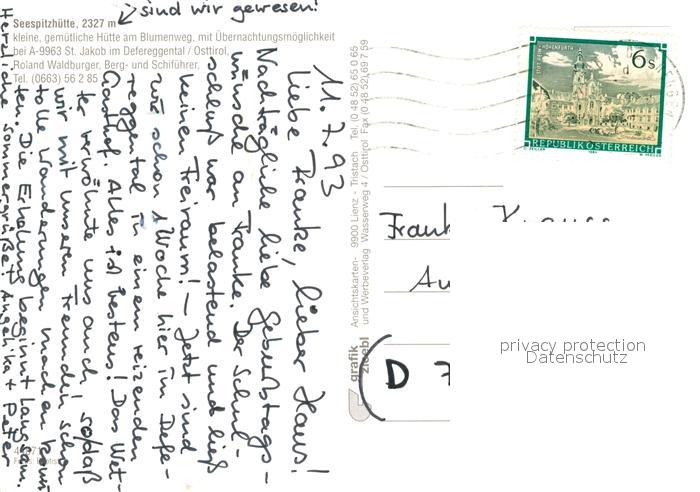 sind wir gewesen!
Seespitzhütte, 2327 m
kleine, gemütliche Hütte am Blumenweg, mit Übernachtungsmöglichkeit
bei A-9963 St. Jakob im Defereggental / Osttirol,
Roland Waldburger, Berg- und Schiführer,
Tel. (0663) 56 2 85
11.7.93
Liebe Frauke, lieber Hans!
Nachträgliche liebe Geburtstags-
wünsche an Frauke. Der Schul-
schluß war belastend und ließ
keinen Freiraum! – Jetzt sind
wir schon 1 Woche hier im Defe-
reggental in einem reizenden
Gasthof. Alles ist bestens! Das Wet-
ter verwöhnte uns auch sodaß
wir mit unseren Freunden schon
tolle Wanderungen machen konn-
ten. Die Erholung beginnt langsam.
Herzliche Sommergrüße! Angelika + Peter
grafik
zloebl
Ansichtskarten- 9900 Lienz - Tristach Tel. (0 48 52) 65 0 65
und Werbeverlag Wasserweg 4 / Osttirol Fax (0 48 52) 69 7 59
STIFT REIN-HOHENFURTH
6 S
REPUBLIK ÖSTERREICH
Frank
Au
D 7
privacy protection
Datenschutz